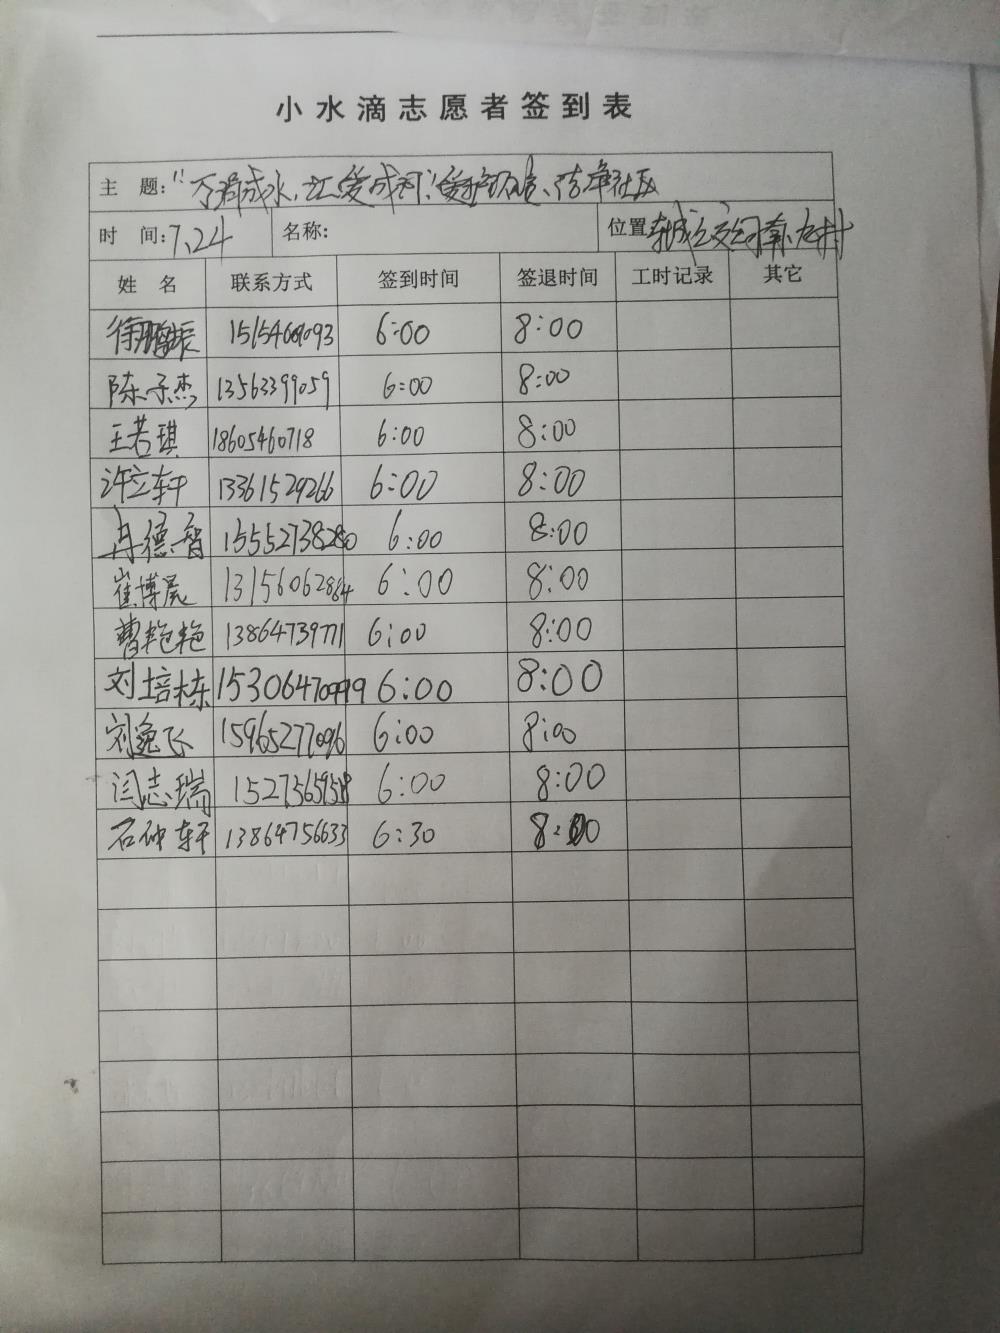 小水滴志愿者签到表
主 题:"万涓成水,汇爱成河"爱护环境、洁净社区
时 间:7.24 名称: 位置
姓 名 联系方式 签到时间 签退时间 工时记录 其它
徐鹏振 6:00 8:00
陈子杰 13563399059 6:00 8:00
王若琪 18605460718 6:00 8:00
许立轩 13361529266 6:00 8:00
冉德智 15552738280 6:00 8:00
崔博晟 13156062884 6:00 8:00
曹艳艳 13864739771 6:00 8:00
刘培栋 6:00 8:00
刘逸飞 15965277096 6:00 8:00
闫志瑞 6:00 8:00
石砷轩 13864756633 6:30 8:00